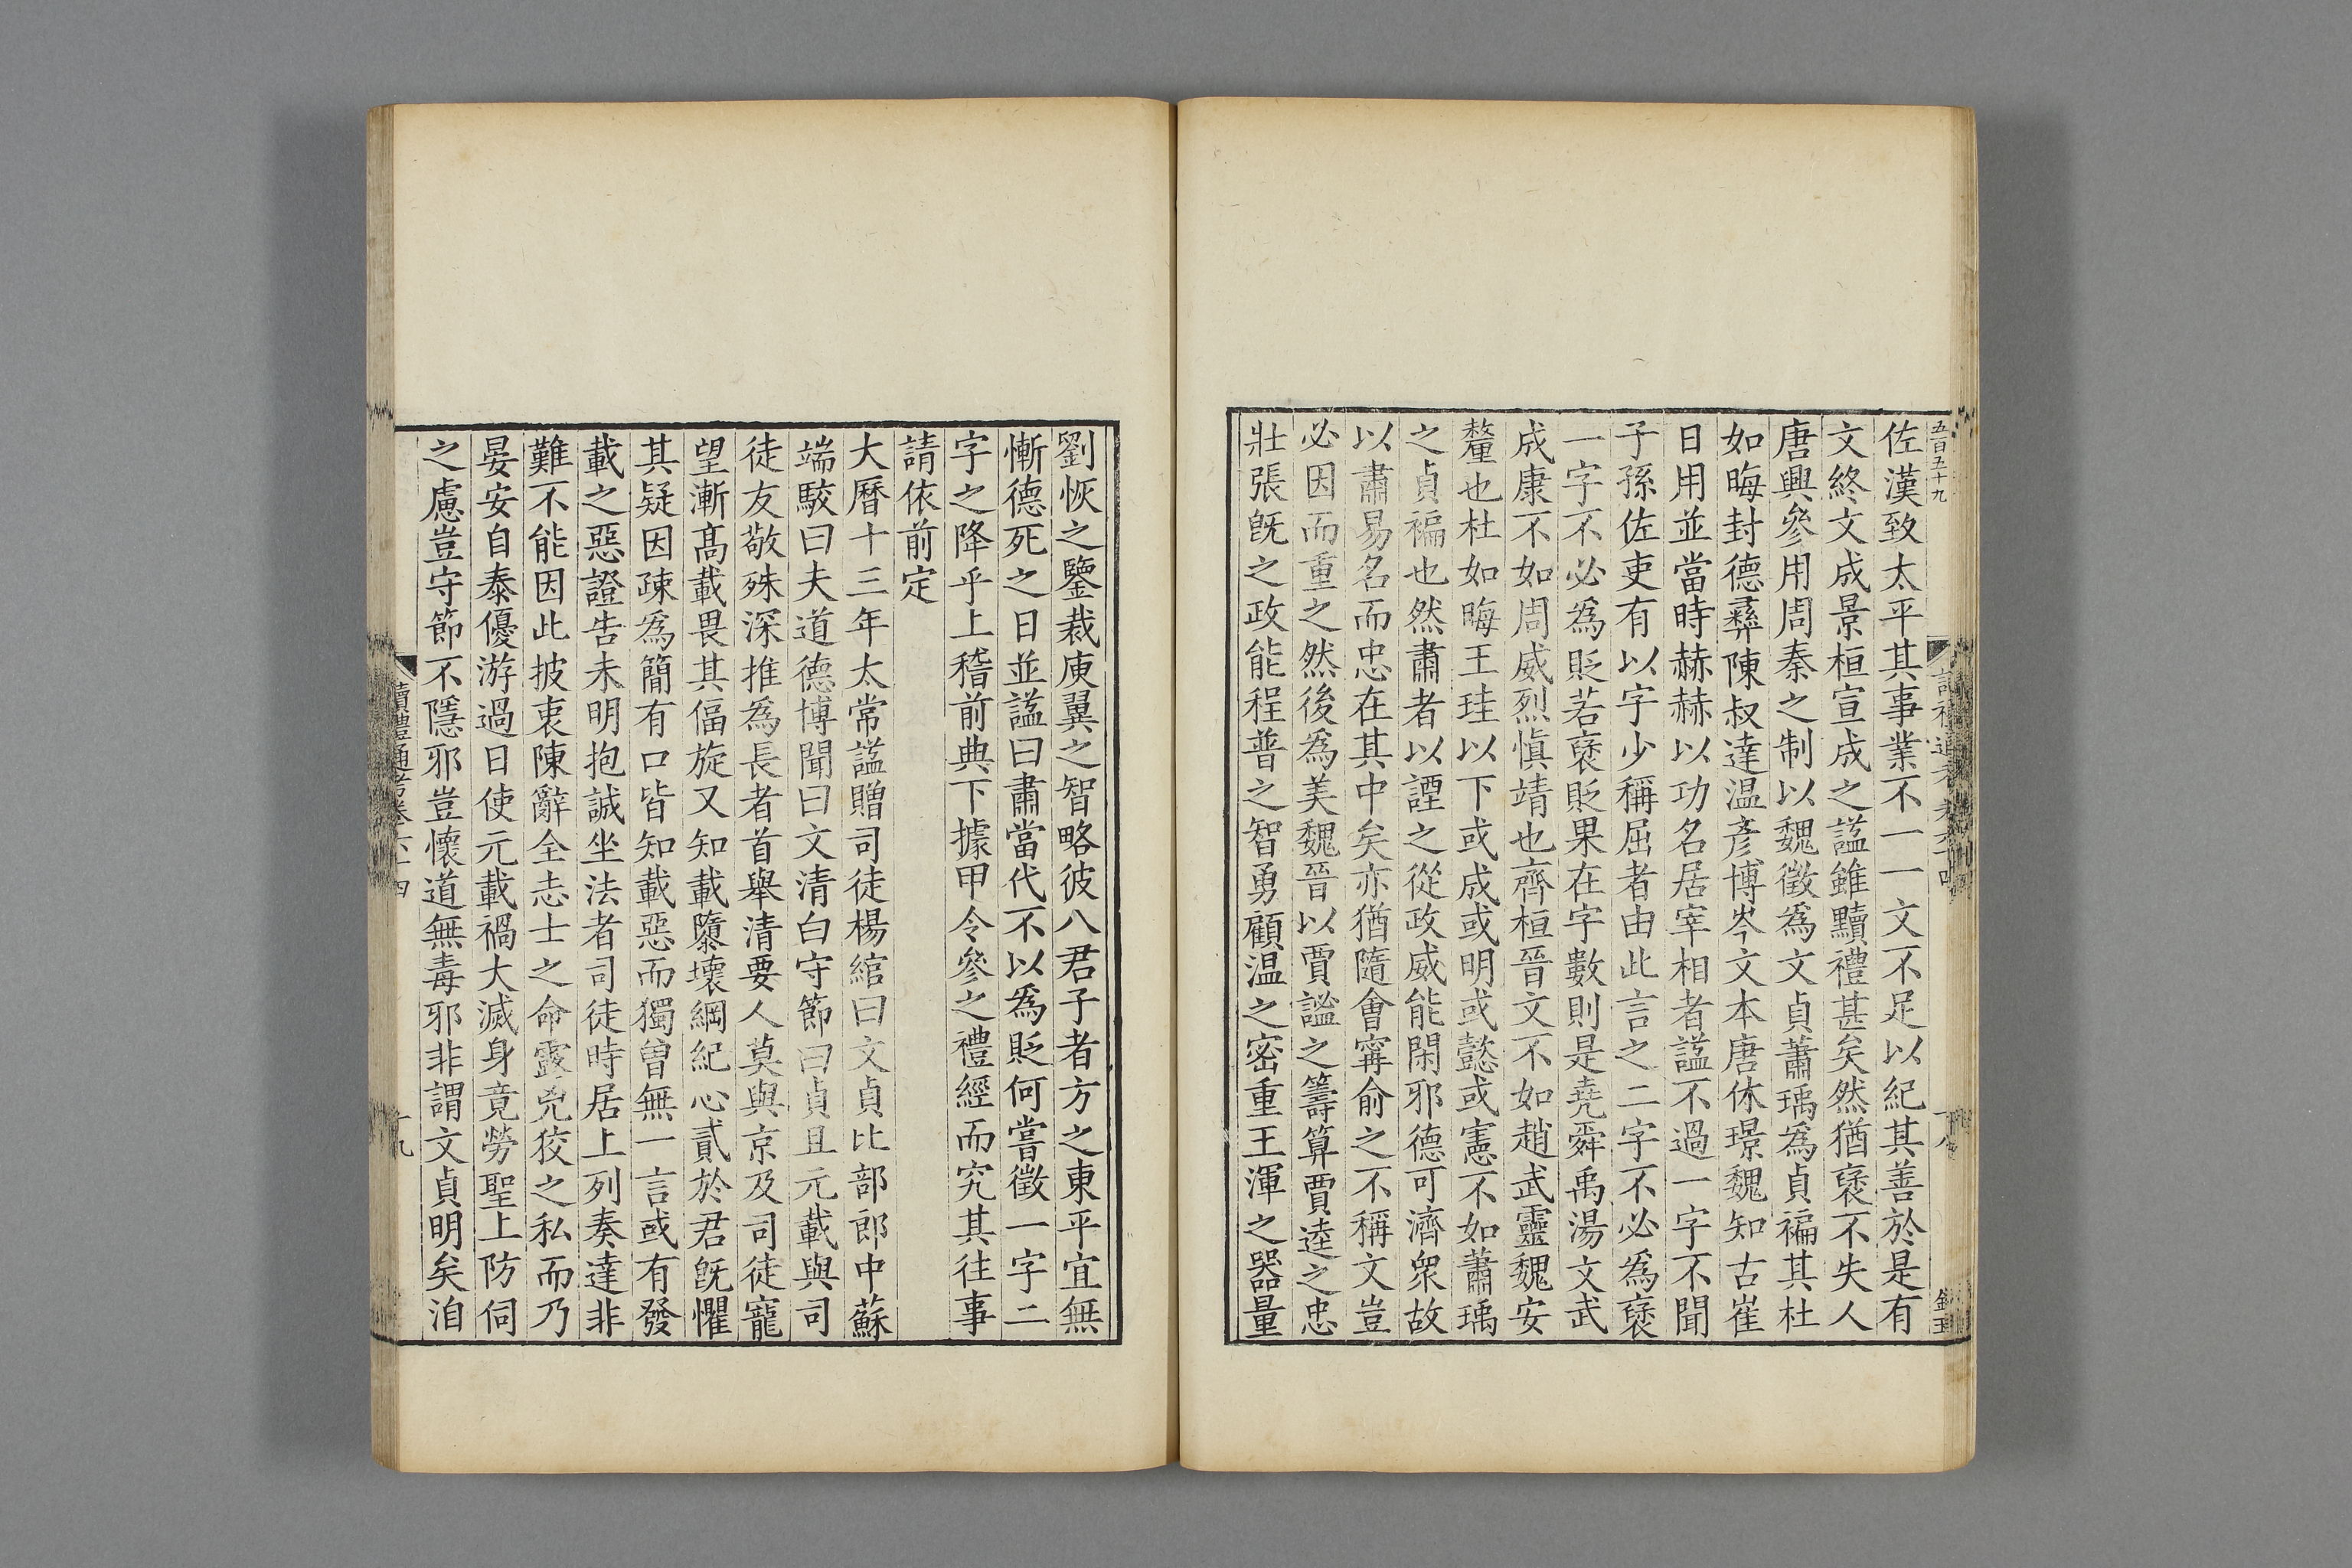 五百五十九
佐漢致太平其事業不一一文不足以紀其善於是有
文終文成景桓宣成之謚雖黷禮甚矣然猶襃不失人
唐興參用周秦之制以魏徵為文貞蕭瑀為貞褊其杜
如晦封德彞陳叔達温彦博岑文本唐休璟魏知古崔
日用並當時赫赫以功名居宰相者謚不過一字不聞
子孫佐吏有以字少稱屈者由此言之二字不必為襃
一字不必為貶若襃貶果在字數則是堯舜禹湯文武
成康不如周威烈愼靖也齊桓晉文不如趙武靈魏安
釐也杜如晦王珪以下或成或明或懿或憲不如蕭瑀
之貞褊也然肅者以諲之從政威能閑邪德可濟衆故
以肅易名而忠在其中矣亦猶隨會甯俞之不稱文豈
必因而重之然後為美魏晉以賈謐之籌算賈逵之忠
壯張旣之政能程普之智勇顧温之密重王渾之器量
劉恢之鑒裁庾翼之智略彼八君子者方之東平宜無
慚德死之日並謚曰肅當代不以為貶何嘗徵一字二
字之降乎上稽前典下據甲令參之禮經而究其往事
請依前定
大曆十三年太常謚贈司徒楊綰曰文貞比部郎中蘇
端駮曰夫道德博聞曰文清白守節曰貞且元載與司
徒友敬殊深推為長者首舉清要人莫與京及司徒寵
望漸髙載畏其偪旋又知載隳壞綱紀心貳於君旣懼
其疑因疎為簡有口皆知載惡而獨曾無一言或有發
載之惡證告未明抱誠坐法者司徒時居上列奏達非
難不能因此披衷陳辭全志士之命露兇狡之私而乃
晏安自泰優游過日使元載禍大滅身竟勞聖上防伺
之慮豈守節不隱邪豈懷道無毒邪非謂文貞明矣洎
讀禮通考卷六十四
十九